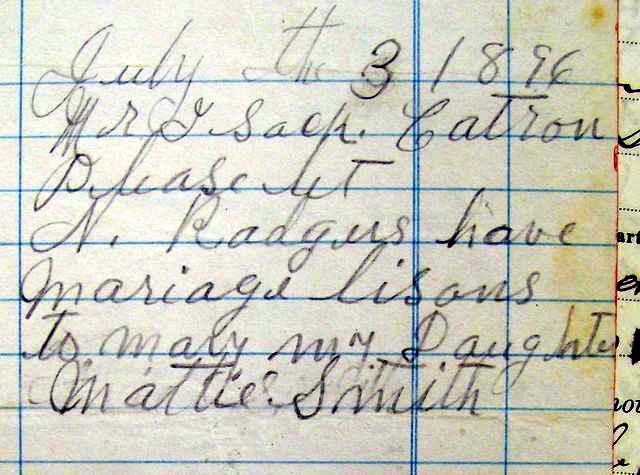 July the 3 1896
Mr Isaop. Catron
Please let
N. Radgers have
mariage lisons
to mary my Daughter
Mattie Smith